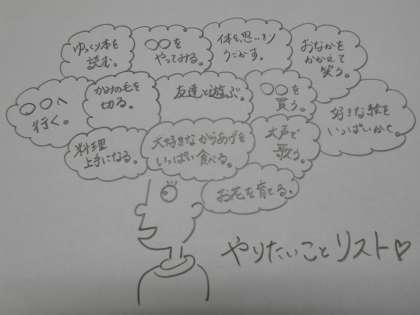 ゆっくり本を
読む。
○○を
やってみる。
体を思いきり
うごかす。
おなかを
かかえて
笑う。
○○へ
行く。
かみの毛を
切る。
友達と遊ぶ。
○○を
買う。
好きな絵を
いっぱいかく。
料理
上手になる。
大好きなからあげを
いっぱい食べる。
大声で
歌う。
お花を育てる。
やりたいことリスト♡